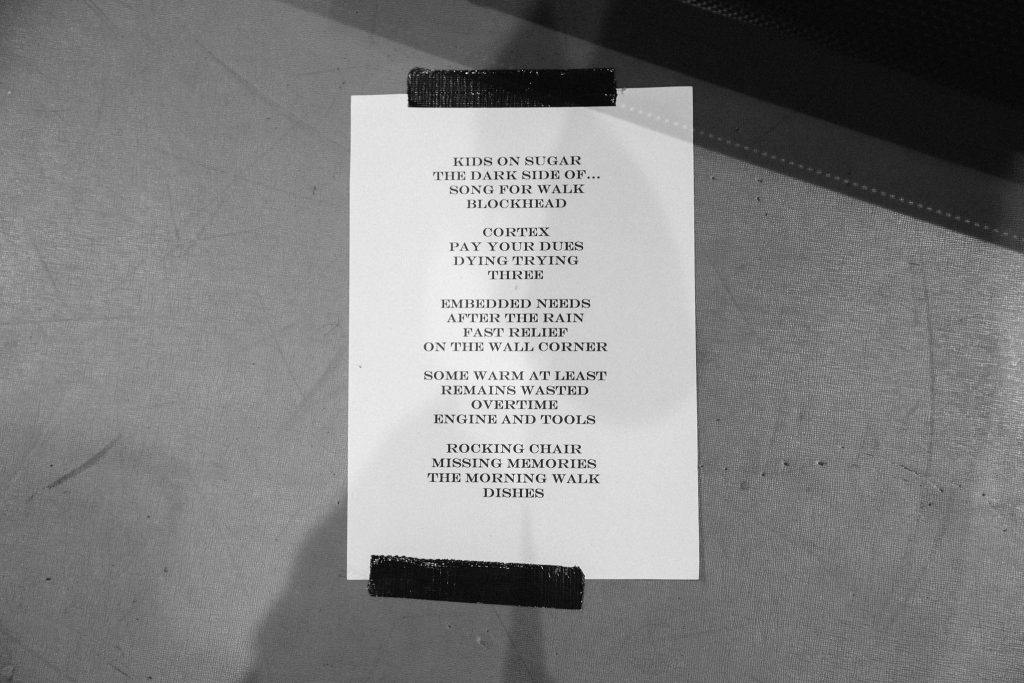 KIDS ON SUGAR
THE DARK SIDE OF...
SONG FOR WALK
BLOCKHEAD
CORTEX
PAY YOUR DUES
DYING TRYING
THREE
EMBEDDED NEEDS
AFTER THE RAIN
FAST RELIEF
ON THE WALL CORNER
SOME WARM AT LEAST
REMAINS WASTED
OVERTIME
ENGINE AND TOOLS
ROCKING CHAIR
MISSING MEMORIES
THE MORNING WALK
DISHES